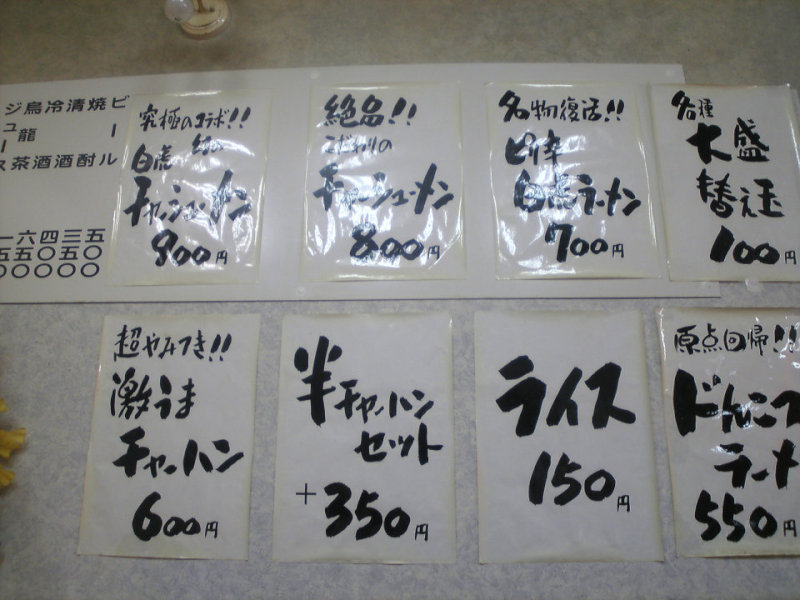 ビール
焼酎
清酒
冷酒
烏龍茶
五五〇
三〇〇
四五〇
六五〇
究極のコラボ!!
白虎
チャーシューメン
900円
絶品!!
こだわりの
チャーシューメン
800円
名物復活!!
ピリ辛
白虎ラーメン
700円
各種
大盛
替え玉
100円
超やみつき!!
激うま
チャーハン
600円
半チャーハン
セット
+350円
ライス
150円
原点回帰!!
どんこつ
ラーメ
550円